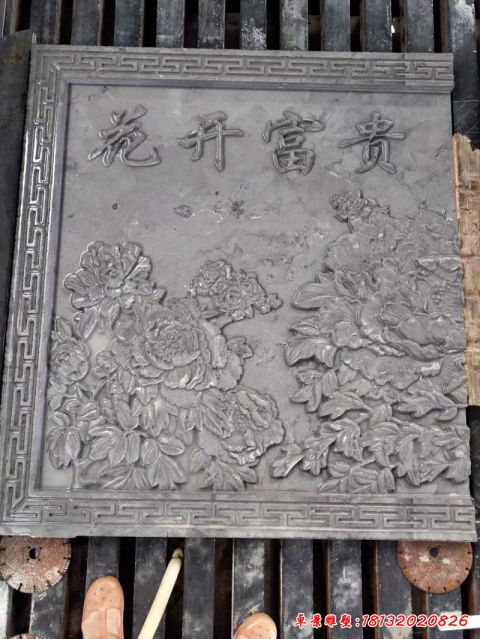 花开富贵
卓景雕塑:18132020826